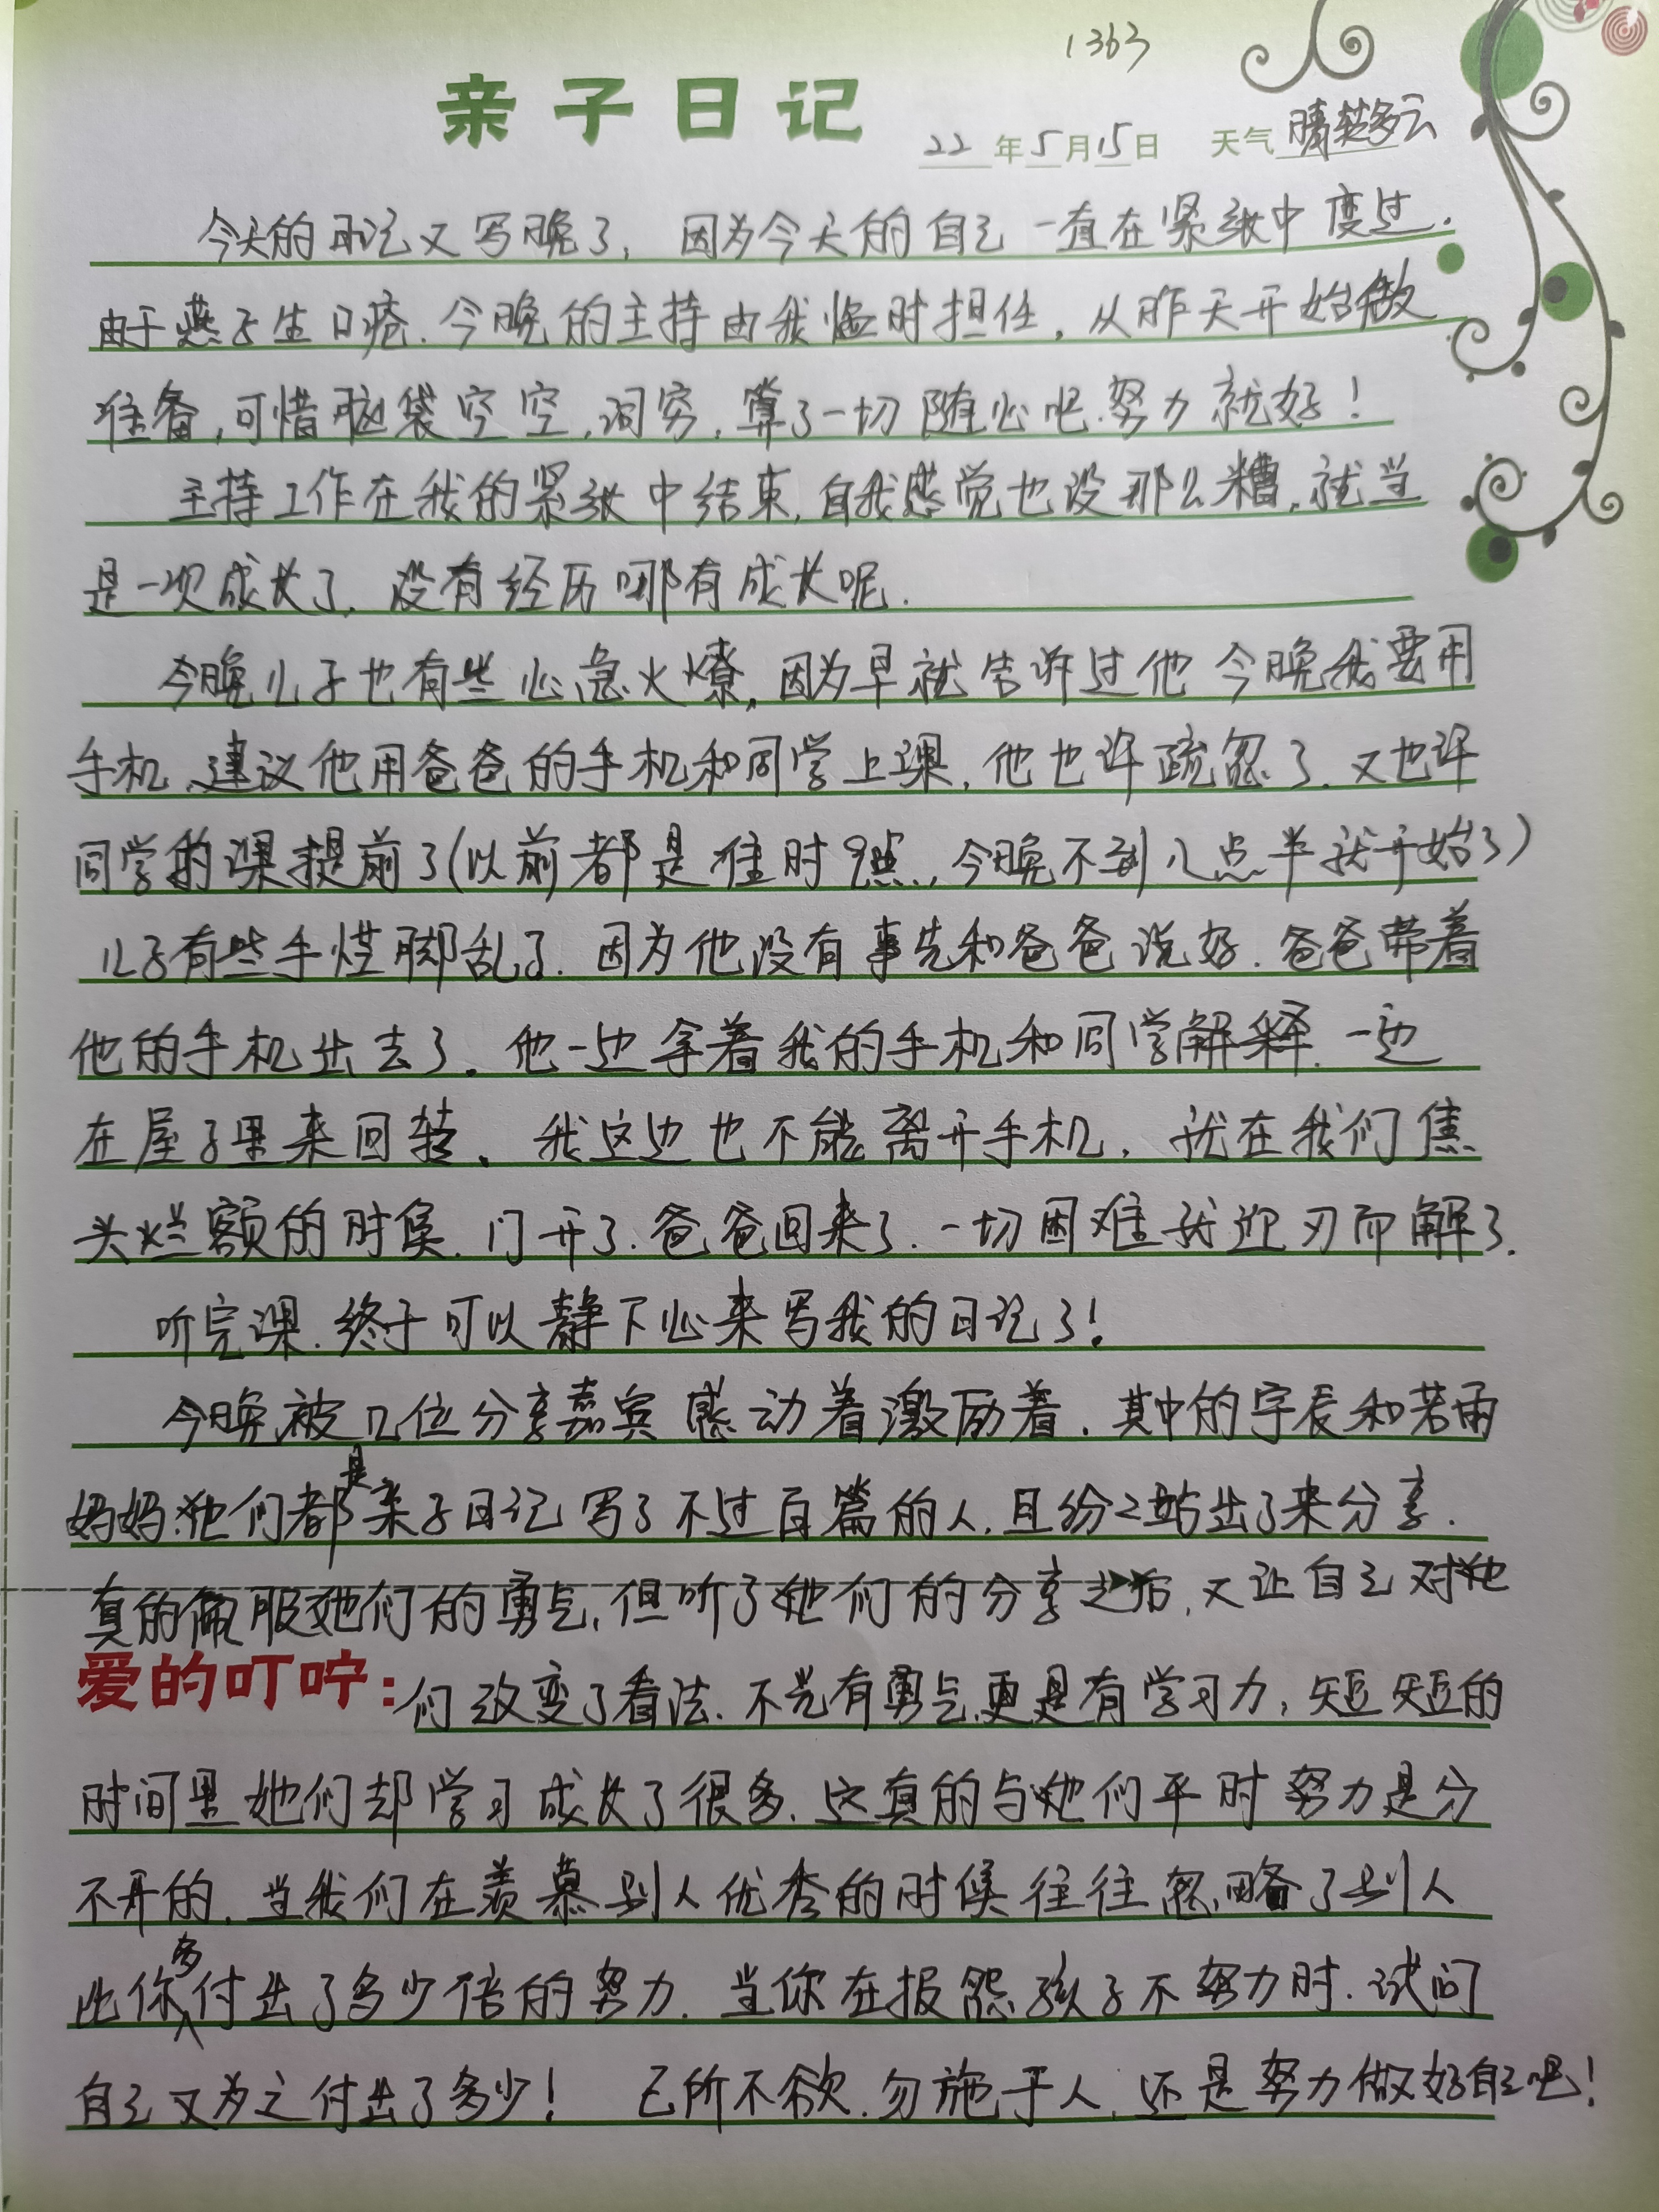 1363
亲子日记
22年5月15日 天气 晴转多云
今天的日记又写晚了，因为今天的自己一直在紧张中度过.
由于燕子生口疮.今晚的主持由我临时担任，从昨天开始做
准备，可惜脑袋空空，词穷，算了一切随心吧.努力就好！
主持工作在我的紧张中结束，自我感觉也没那么糟，就当
是一次成长了.没有经历哪有成长呢.
今晚儿子也有些心急火燎，因为早就告诉过他今晚我要用
手机，建议他用爸爸的手机和同学上课，他也许疏忽了.又也许
同学的课提前了（以前都是准时9点，今晚不到八点半就开始了）
儿子有些手忙脚乱了.因为他没有事先和爸爸说好.爸爸带着
他的手机出去了。他一边拿着我的手机和同学解释.一边
在屋子里来回转。我这边也不能离开手机，就在我们焦
头烂额的时候.门开了.爸爸回来了.一切困难就迎刃而解了.
听完课.终于可以静下心来写我的日记了！
今晚被几位分享嘉宾感动着激励着.其中的宇辰和若雨
妈妈.她们都是亲子日记写了不过百篇的人.且纷纷站出了来分享.
真的佩服她们的勇气，但听了她们的分享之后，又让自己对她
爱的叮咛：们改变了看法.不光有勇气，更是有学习力，短短的
时间里她们却学习成长了很多.这真的与她们平时努力是分
不开的.当我们在羡慕别人优秀的时候往往忽略了别人
比你多付出了多少倍的努力.当你在报怨孩子不努力时.试问
自己又为之付出了多少！ 己所不欲.勿施于人.还是努力做好自己吧！